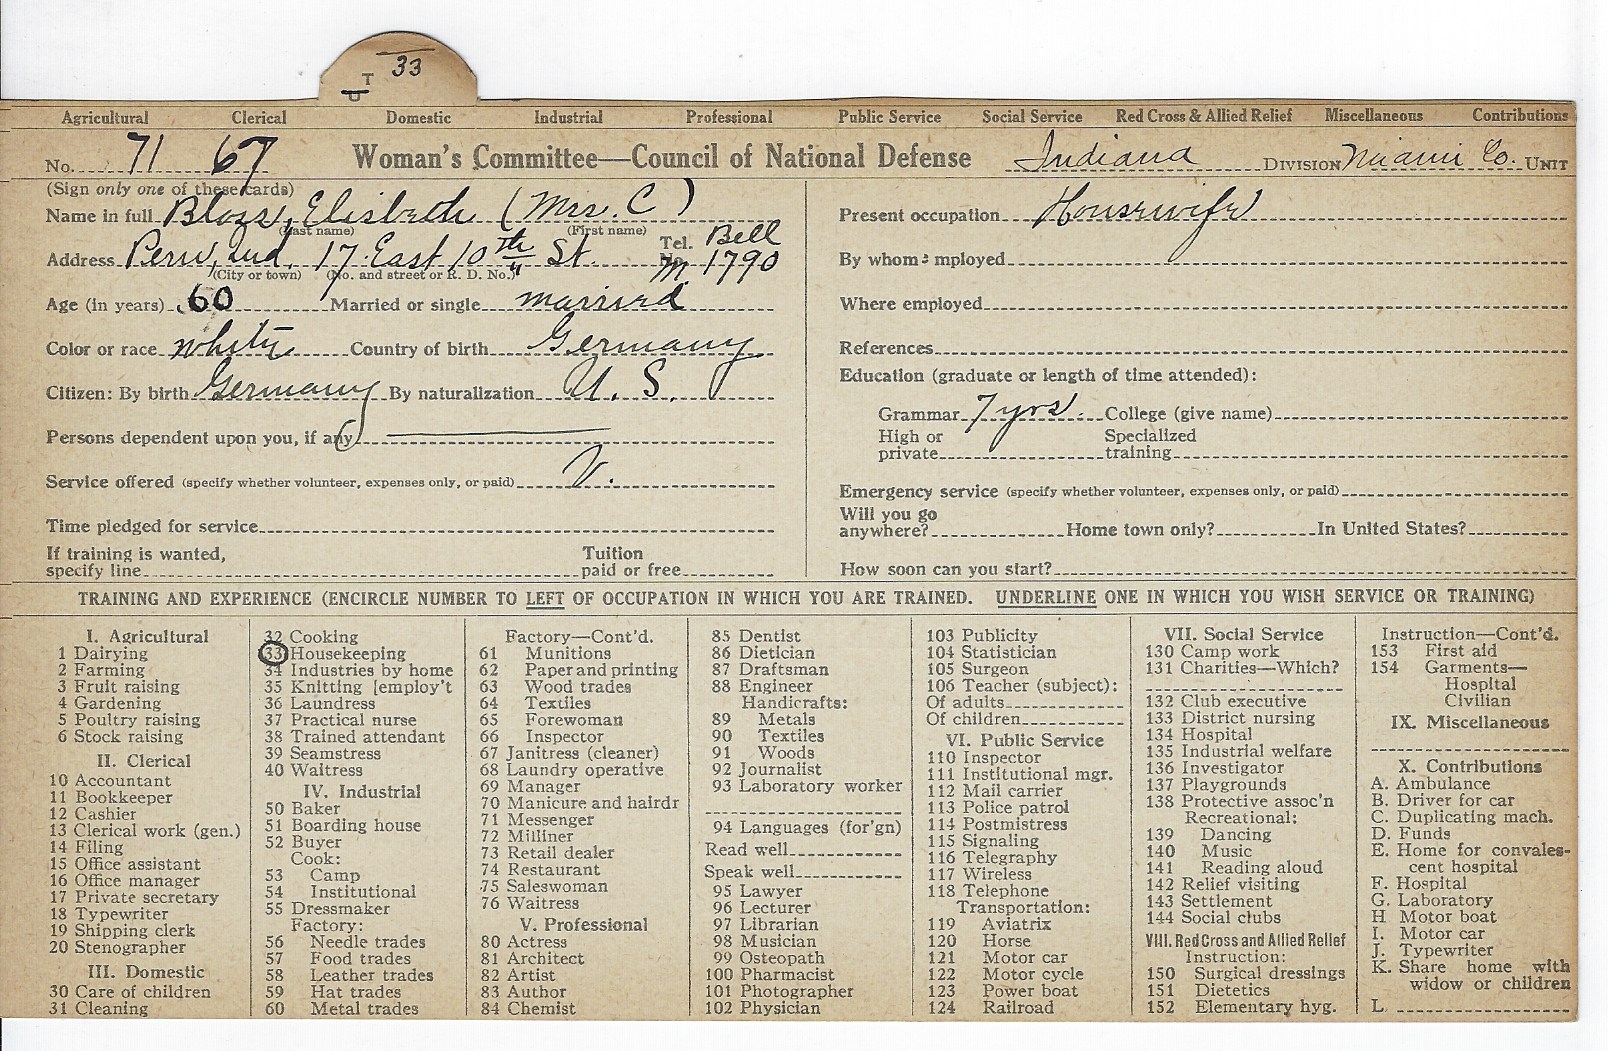 33
T
U
Agricultural Clerical Domestic Industrial Professional Public Service Social Service Red Cross & Allied Relief Miscellaneous Contributions
No. 71 67 Woman's Committee—Council of National Defense Indiana DIVISION Miami Co. UNIT
(Sign only one of these cards)
Name in full Bloss, Elisbeth (Mrs. C)
(Last name) (First name)
Address Peru, Ind. 17 East 10th St. Tel. No. Bell M 1790
(City or town) (No. and street or R. D. No.)
Age (in years) 60 Married or single married
Color or race white Country of birth Germany
Citizen: By birth Germany By naturalization U. S.
Persons dependent upon you, if any
Service offered (specify whether volunteer, expenses only, or paid) V.
Time pledged for service
If training is wanted, specify line Tuition paid or free
Present occupation Housewife
By whom employed
Where employed
References
Education (graduate or length of time attended):
Grammar 7 yrs. College (give name)
High or private Specialized training
Emergency service (specify whether volunteer, expenses only, or paid)
Will you go anywhere? Home town only? In United States?
How soon can you start?
TRAINING AND EXPERIENCE (ENCIRCLE NUMBER TO LEFT OF OCCUPATION IN WHICH YOU ARE TRAINED. UNDERLINE ONE IN WHICH YOU WISH SERVICE OR TRAINING)
I. Agricultural
1 Dairying
2 Farming
3 Fruit raising
4 Gardening
5 Poultry raising
6 Stock raising
II. Clerical
10 Accountant
11 Bookkeeper
12 Cashier
13 Clerical work (gen.)
14 Filing
15 Office assistant
16 Office manager
17 Private secretary
18 Typewriter
19 Shipping clerk
20 Stenographer
III. Domestic
30 Care of children
31 Cleaning
32 Cooking
33 Housekeeping
34 Industries by home
35 Knitting [employ't
36 Laundress
37 Practical nurse
38 Trained attendant
39 Seamstress
40 Waitress
IV. Industrial
50 Baker
51 Boarding house
52 Buyer
Cook:
53 Camp
54 Institutional
55 Dressmaker
Factory:
56 Needle trades
57 Food trades
58 Leather trades
59 Hat trades
60 Metal trades
Factory—Cont'd.
61 Munitions
62 Paper and printing
63 Wood trades
64 Textiles
65 Forewoman
66 Inspector
67 Janitress (cleaner)
68 Laundry operative
69 Manager
70 Manicure and hairdr
71 Messenger
72 Milliner
73 Retail dealer
74 Restaurant
75 Saleswoman
76 Waitress
V. Professional
80 Actress
81 Architect
82 Artist
83 Author
84 Chemist
85 Dentist
86 Dietician
87 Draftsman
88 Engineer
Handicrafts:
89 Metals
90 Textiles
91 Woods
92 Journalist
93 Laboratory worker
94 Languages (for'gn)
Read well
Speak well
95 Lawyer
96 Lecturer
97 Librarian
98 Musician
99 Osteopath
100 Pharmacist
101 Photographer
102 Physician
103 Publicity
104 Statistician
105 Surgeon
106 Teacher (subject):
Of adults
Of children
VI. Public Service
110 Inspector
111 Institutional mgr.
112 Mail carrier
113 Police patrol
114 Postmistress
115 Signaling
116 Telegraphy
117 Wireless
118 Telephone
Transportation:
119 Aviatrix
120 Horse
121 Motor car
122 Motor cycle
123 Power boat
124 Railroad
VII. Social Service
130 Camp work
131 Charities—Which?
132 Club executive
133 District nursing
134 Hospital
135 Industrial welfare
136 Investigator
137 Playgrounds
138 Protective assoc'n
Recreational:
139 Dancing
140 Music
141 Reading aloud
142 Relief visiting
143 Settlement
144 Social clubs
VIII. Red Cross and Allied Relief
Instruction:
150 Surgical dressings
151 Dietetics
152 Elementary hyg.
Instruction—Cont'd.
153 First aid
154 Garments—
Hospital
Civilian
IX. Miscellaneous
X. Contributions
A. Ambulance
B. Driver for car
C. Duplicating mach.
D. Funds
E. Home for convales-
cent hospital
F. Hospital
G. Laboratory
H Motor boat
I. Motor car
J. Typewriter
K. Share home with
widow or children
L